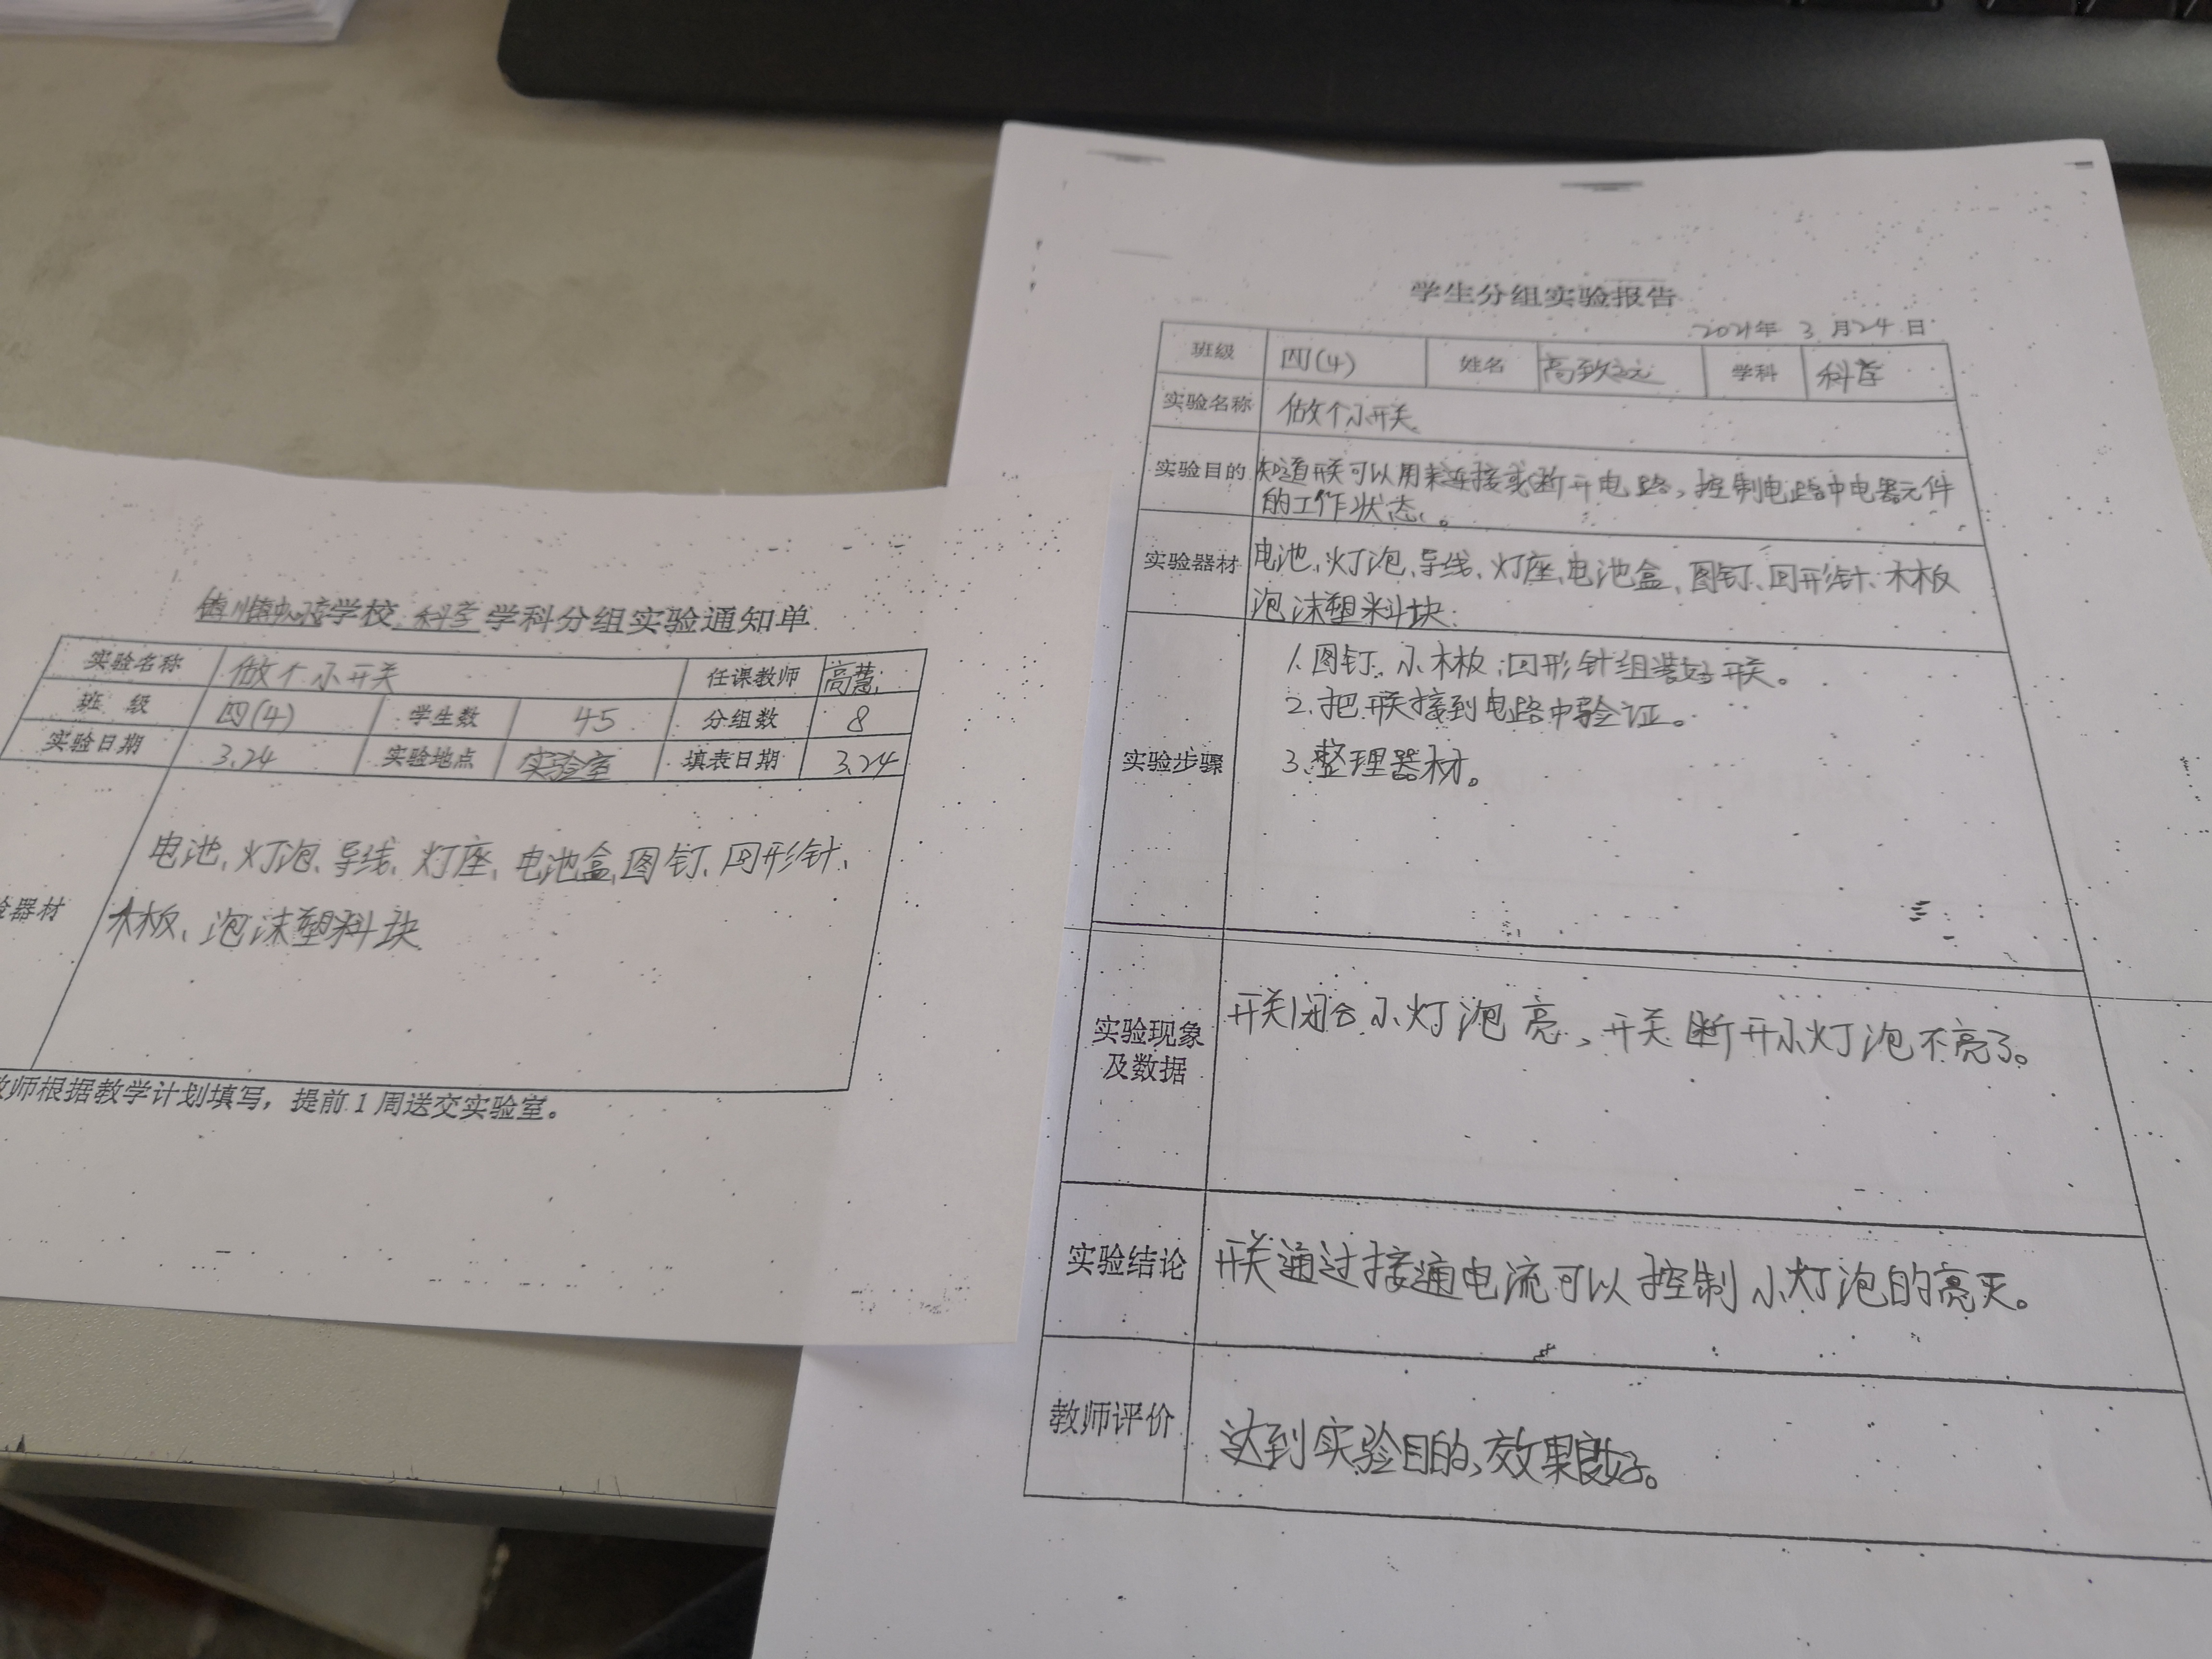 学校 科学 学科分组实验通知单
实验名称 做个小开关 任课教师 高慧
班 级 四(4) 学生数 45 分组数 8
实验日期 3.24 实验地点 实验室 填表日期 3.24
验器材
电池、灯泡、导线、灯座、电池盒、图钉、回形针、
木板、泡沫塑料块
师根据教学计划填写，提前1周送交实验室。
学生分组实验报告
2021年 3 月24 日
班级 四(4) 姓名 高致 学科 科学
实验名称 做个小开关
实验目的 知道开关可以用来连接或断开电路，控制电路中电器元件
的工作状态。
实验器材 电池、灯泡、导线、灯座、电池盒、图钉、回形针、木板
泡沫塑料块.
实验步骤
1.图钉、小木板、回形针组装好开关。
2.把开关接到电路中验证。
3.整理器材。
实验现象
及数据
开关闭合小灯泡亮，开关断开小灯泡不亮了。
实验结论 开关通过接通电流可以控制小灯泡的亮灭。
教师评价 达到实验目的，效果良好。